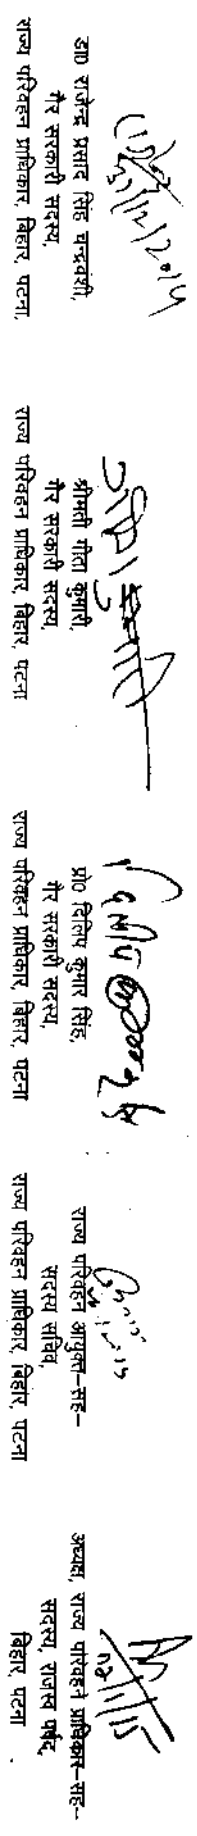 31/12/2014
डा0 राजेन्द्र प्रसाद सिंह चन्द्रवंशी,
गैर सरकारी सदस्य,
राज्य परिवहन प्राधिकार, बिहार, पटना,
श्रीमती गीता कुमारी,
गैर सरकारी सदस्य,
राज्य परिवहन प्राधिकार, बिहार, पटना
प्रो0 दिलिप कुमार सिंह,
गैर सरकारी सदस्य,
राज्य परिवहन प्राधिकार, बिहार, पटना
राज्य परिवहन आयुक्त–सह–
सदस्य सचिव,
राज्य परिवहन प्राधिकार, बिहार, पटना
अध्यक्ष, राज्य परिवहन प्राधिकार–सह–
सदस्य, राजस्व पर्षद,
बिहार, पटना